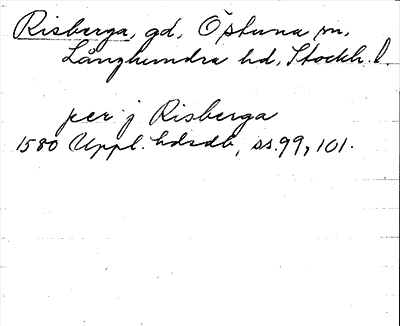 Risberga, gd, Östuna sn,
Långhundra hd, Stockh. l.
per j Risberga
1580 Uppl. hdsdb, ss. 99, 101.